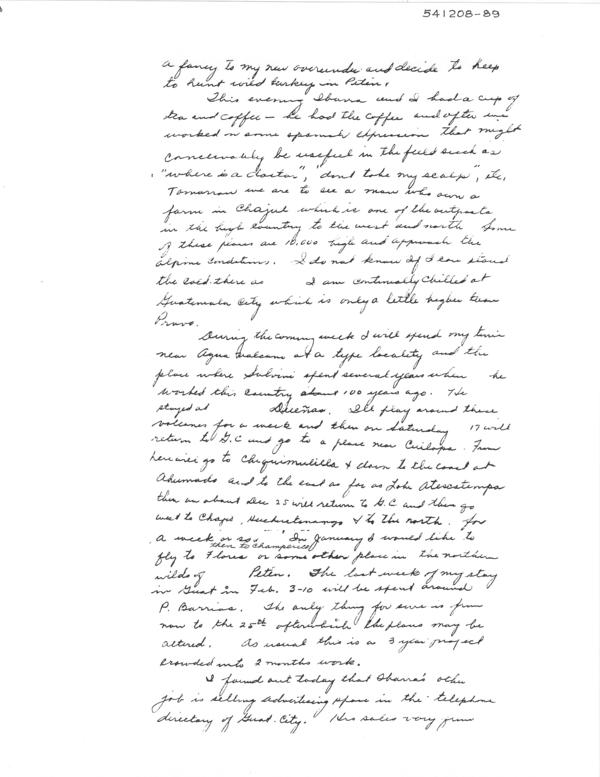 541208-89
a fancy to my new overunder and decide to keep
to hunt wild turkey in Peten.
This evening Ibarra and I had a cup of
tea and coffee — he had the coffee and after we
worked on some spanish expression that might
conceivably be useful in the field such as
"where is a doctor", "dont take my scalp", etc.
Tomorrow we are to see a man who own a
farm in Chajul which is one of the outposts
in the high country to the west and north. Some
of these places are 10,000 high and approach the
alpine conditions. I do not know if I can stand
the cold there as I am continually chilled at
Guatemala City which is only a little higher than
Provo.
During the coming week I will spend my time
near Agua volcano at a type locality and the
place where Salvini spent several years when he
worked this country about 100 years ago. He
stayed at Dueñas. I'll play around these
volcanos for a week and then on Saturday 17 will
return to G.C and go to a place near Cuilapa. From
here will go to Chiquimulilla & down to the coast at
Ahumado and to the east as far as Lake Atescatempa
then on about Dec 25 will return to G.C and then go
west to Chapel, Huehuetenango & to the north. for
a week or so. In January I would like to
then to Champerico
fly to Flores or some other place in the northern
wilds of Peten. The last week of my stay
in Guat in Feb. 3-10 will be spent around
P. Barrios. The only thing for sure is from
now to the 25th after which the plans may be
altered. As usual this is a 3 year project
crowded into 2 months work.
I found out today that Ibarra's other
job is selling advertising space in the telephone
directory of Guat. City. His sales very from